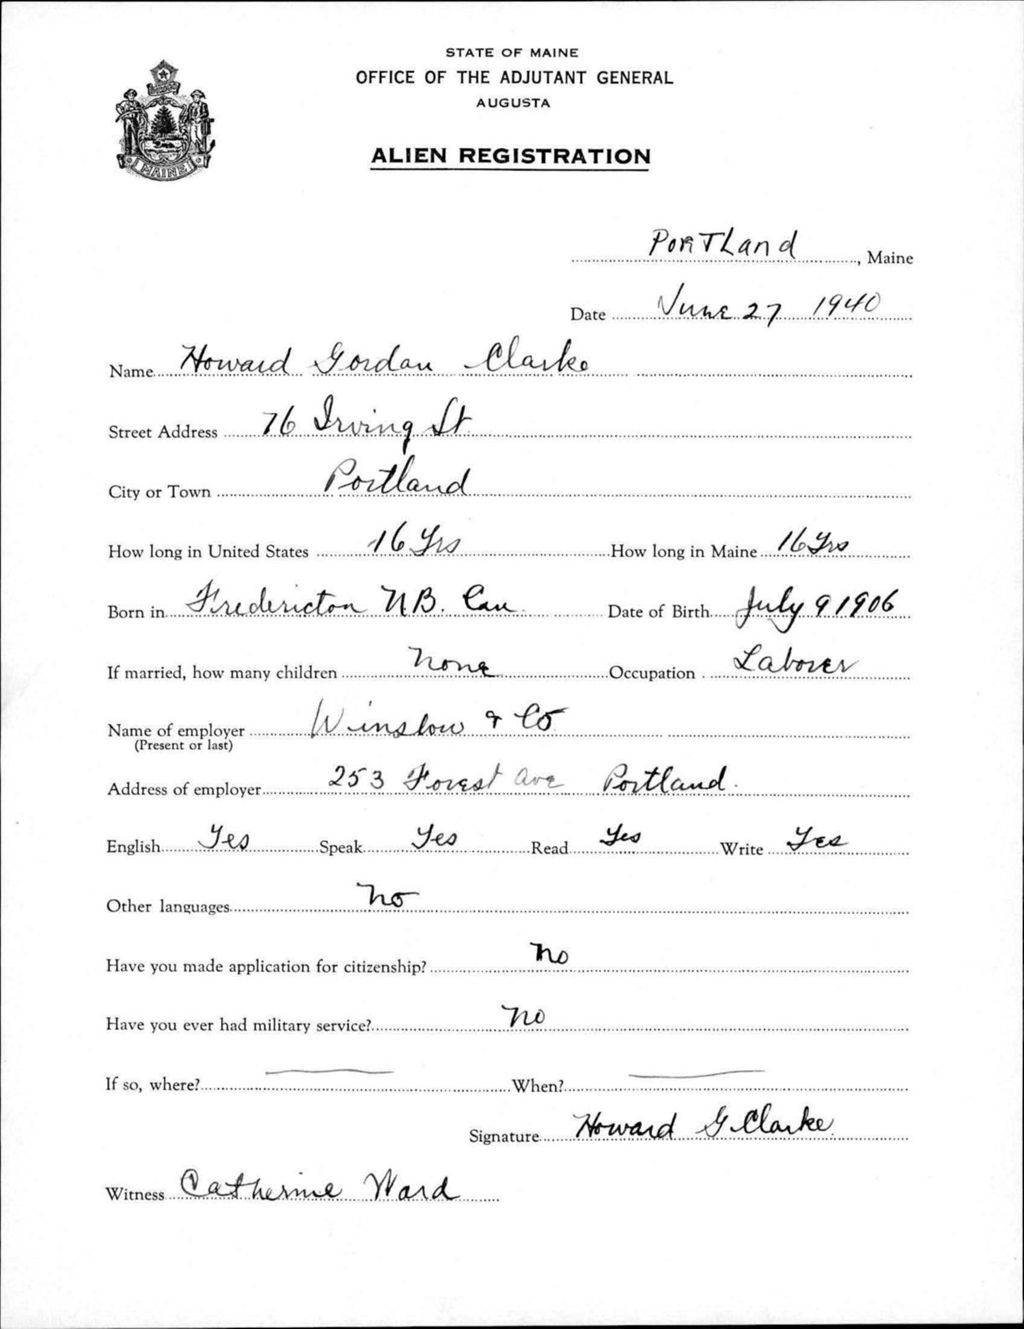 STATE OF MAINE
OFFICE OF THE ADJUTANT GENERAL
AUGUSTA
MAINE
ALIEN REGISTRATION
Portland, Maine
Date June 27 1940
Name Howard Gordon Clarke
Street Address 76 Irving St
City or Town Portland
How long in United States 16 Yrs How long in Maine 16 Yrs
Born in Fredericton NB. Can. Date of Birth July 9 1906
If married, how many children None Occupation Laborer
Name of employer Winslow & Co
(Present or last)
Address of employer 253 Forest Ave Portland.
English Yes Speak Yes Read Yes Write Yes
Other languages No
Have you made application for citizenship? No
Have you ever had military service? No
If so, where? When?
Signature Howard G. Clarke
Witness Catherine Ward